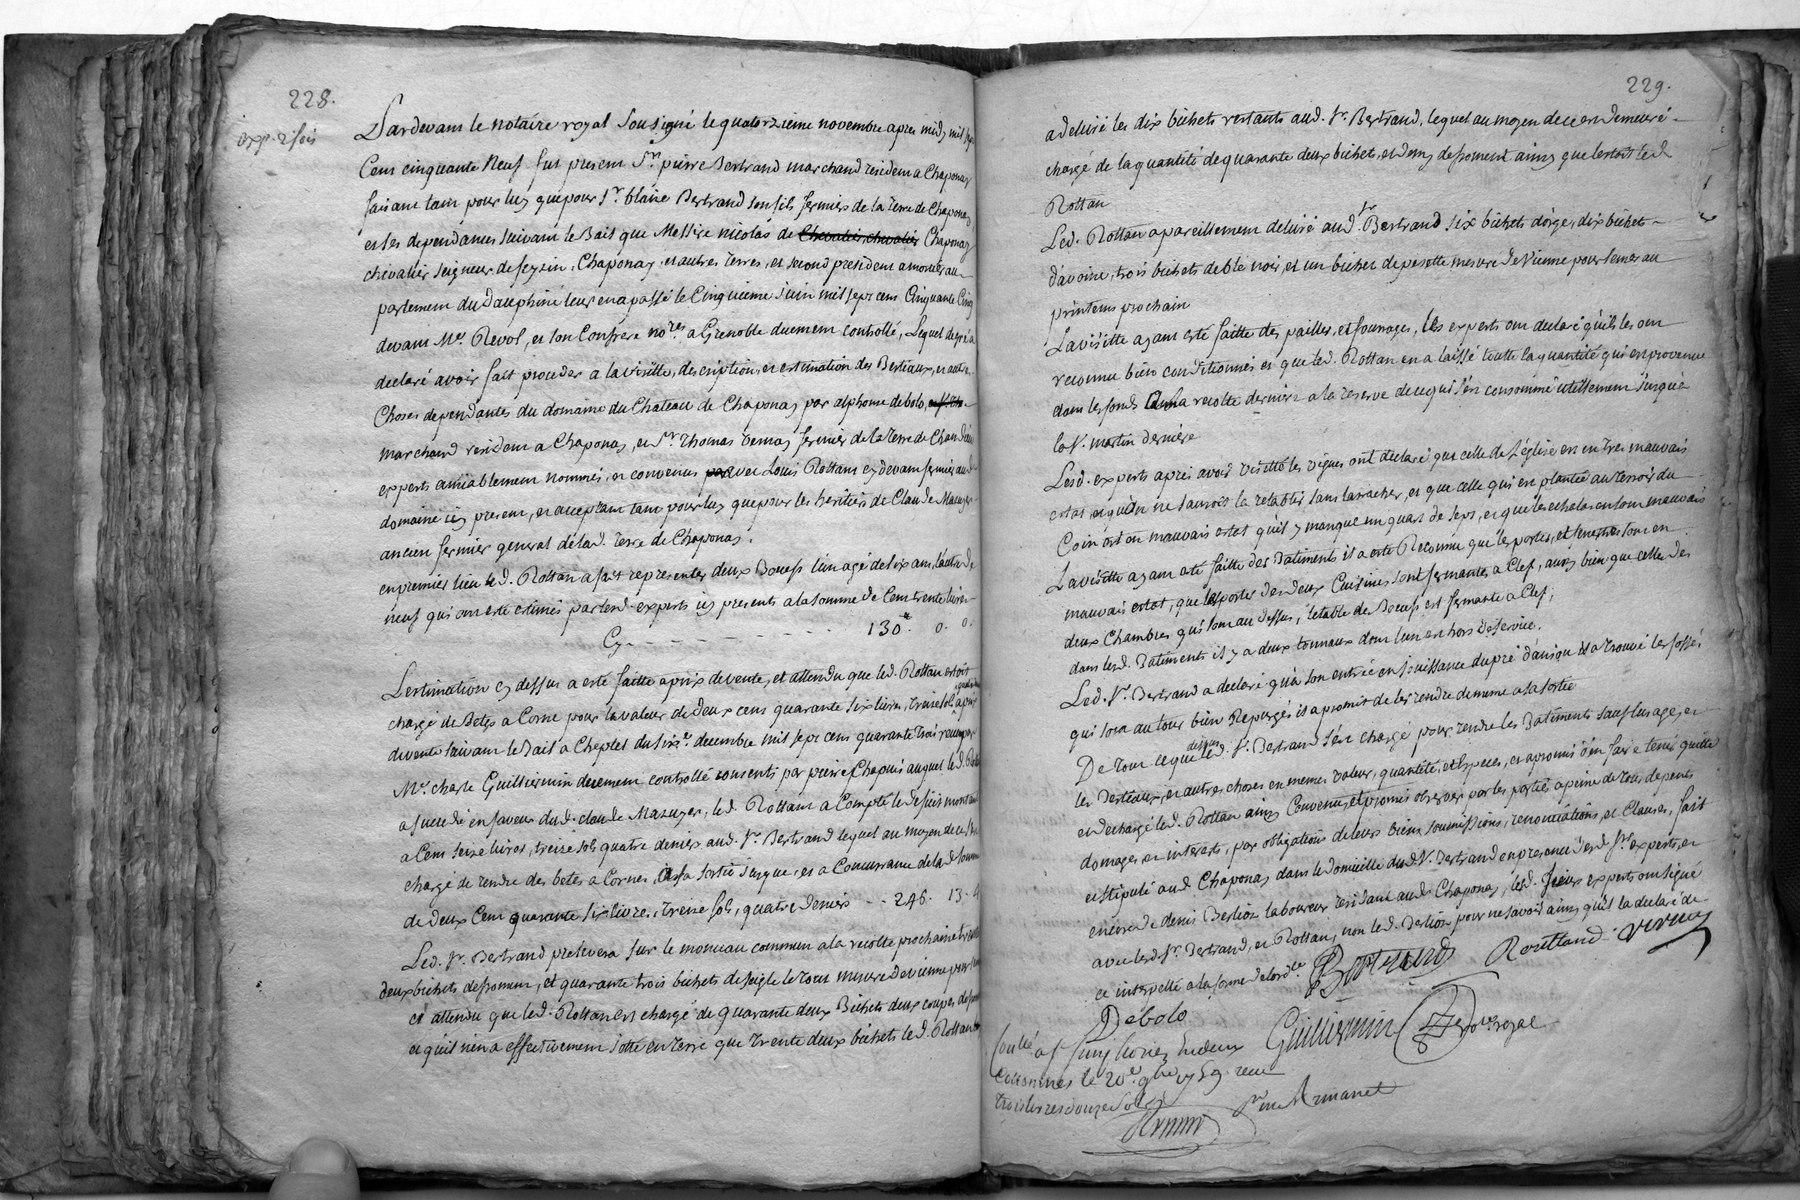 228.
exp. 2 fois
Pardevant le notaire royal soussigné le quatorzieme novembre apres midy mil sept
Cens cinquante Neuf fut present Sr. pierre Bertrand marchand resident a Chaponay
faisant tant pour luy que pour Sr. blaise Bertrand son fils fermiers de la Terre de Chaponay
et ses dependances suivant le Bail que Messire nicolas de Chevalier, chevalier Chaponay
chevalier seigneur de feysin, Chaponay, et autres Terres, et second president a mortier au
parlement du Dauphiné leur en a passé le Cinquieme juin mil sept cens Cinquante Cinq
devant Me. Revol, et son Confrere nores. a Grenoble duement controllé, Lequel de gré a
declaré avoir fait proceder a la visitte, description, et estimation des Bestiaux, et autres
Choses dependantes du domaine du Chateau de Chaponay par alphonse debolo,
marchand resident a Chaponay, et Sr. Thomas vernay fermier de la Terre de Chandieu
experts amiablement nommés, et convenus avec Louis Rottan cy devant fermier aud.
domaine icy present, et acceptant tant pour luy que pour les heritiers de Claude Mazuyer
ancien fermier general de lad. Terre de Chaponay.
en premier lieu led. Rottan a fait representer deux Boeufs l'un agé de six ans l'autre de
neuf qui ont esté estimés par lesd. experts icy presents a la somme de Cent trente livres
Cy - - - - - - - - - 130₶. 0. 0.
L'estimation cy dessus a esté faitte a prix de vente, et attendu que led. Rottan estoit
chargé de Betes a Corne pour la valeur de deux cens quarante six livres, treize sols quatre deniers a prix
de vente suivant le Bail a Cheptel du decembre mil sept cens quarante trois receu par
Me. charle Guilliermin duement controllé consenti par pierre Chapuis auquel led. Rottan
a succedé en faveur dud. claude Mazuyer, led. Rottan a Compté le desus montant
a Cent seize livres, treize sols quatre deniers aud. Sr. Bertrand lequel au moyen de ce s'est
chargé de rendre des betes a Cornes, a sa sortie jusque, et a Concurrance de lad. somme
de deux Cent quarante six livres, treize sols, quatre deniers - - 246. 13. 4
Led. Sr. Bertrand prelevera sur le monceau commun a la recolte prochaine trente
deux bichets de froment, et quarante trois bichets de seigle le tout mesure de vienne pour
et attendu que led. Rottan est chargé de quarante deux Bichets deux coupes de froment
et qu'il n'en a effectivement jetté en terre que trente deux bichets le d. Rottan
229.
a delivré les dix bichets restants aud. Sr. Bertrand, lequel au moyen de ce est demeuré
chargé de la quantité de quarante deux bichet, et demy de froment ainsy que l'estoit led.
Rottan
Led. Rottan a pareillement delivré aud. Sr. Bertrand six bichets d'orge, dix bichets
d'avoine, trois bichets de blé noir, et un bichet de pesette mesure de Vienne pour semer au
printems prochain
La visitte ayant esté faitte des pailles, et fourrages, les experts ont declaré qu'ils les ont
reconnu bien conditionnés et que led. Rottan en a laissé toutte la quantité qui en provenue
dans les fonds la recolte derniere a la reserve de ce qui s'en consommé utillement jusqu'a
la St. martin derniere
Lesd. experts aprés avoir visitté les vignes ont declaré que celle de L'église est en tres mauvais
estat, et qu'on ne sauroit la retablir sans l'arracher, et que celle qui en plantée au terroir du
Coin est en mauvais estat qu'il y manque un quart de seps, et que les echalas en sont mauvais
La visitte ayant eté faitte des Batiments il a esté Reconnu que les portes, et fenestres sont en
mauvais estat, que les portes des deux Cuisines sont fermantes a Clef, aussy bien que celle des
deux Chambres qui sont au dessus, l'etable des Boeufs est fermante a Clef;
dans lesd. Batiments il y a deux tonnaux dont l'un est hors de service.
Led. Sr. Bertrand a declaré qu'a son entrée en jouissance du pré d'anjou il a trouvé les fossés
qui sont au tour bien Repurgés il a promit de les rendre de meme a sa sortie
De tout ce que dessus led. Sr. Bertrand s'est chargé pour rendre les Batiments sauf l'usage, et
les Bestiaux, et autres choses en memes valeur, quantité, et especes, et a promis d'en faire tenir quitte
et dechargé led. Rottan ainsy Convenu, et promis observer par les parties a peine de tous depents
domages, et interests, par obligations de leurs biens soumissions, renonciations, et Clauses, fait
et stipulé aud. Chaponay dans le domicille dud. Sr. Bertrand en presence desd. Srs. experts, et
encore de denis Berlioz laboureur residant aud. Chaponay, lesd. Sieurs experts ont signé
avec led. Sr. Bertrand, et Rottan, non led. Berlioz pour ne savoir ainsy qu'il la declaré de
ce interpellé a la forme de lord.ce
Bertrand Routtand vernay
Debolo
Guilliermin no.re royal
Coulonnes le 20e. 9bre 1759. receu
trois livres douze sols
Armanet